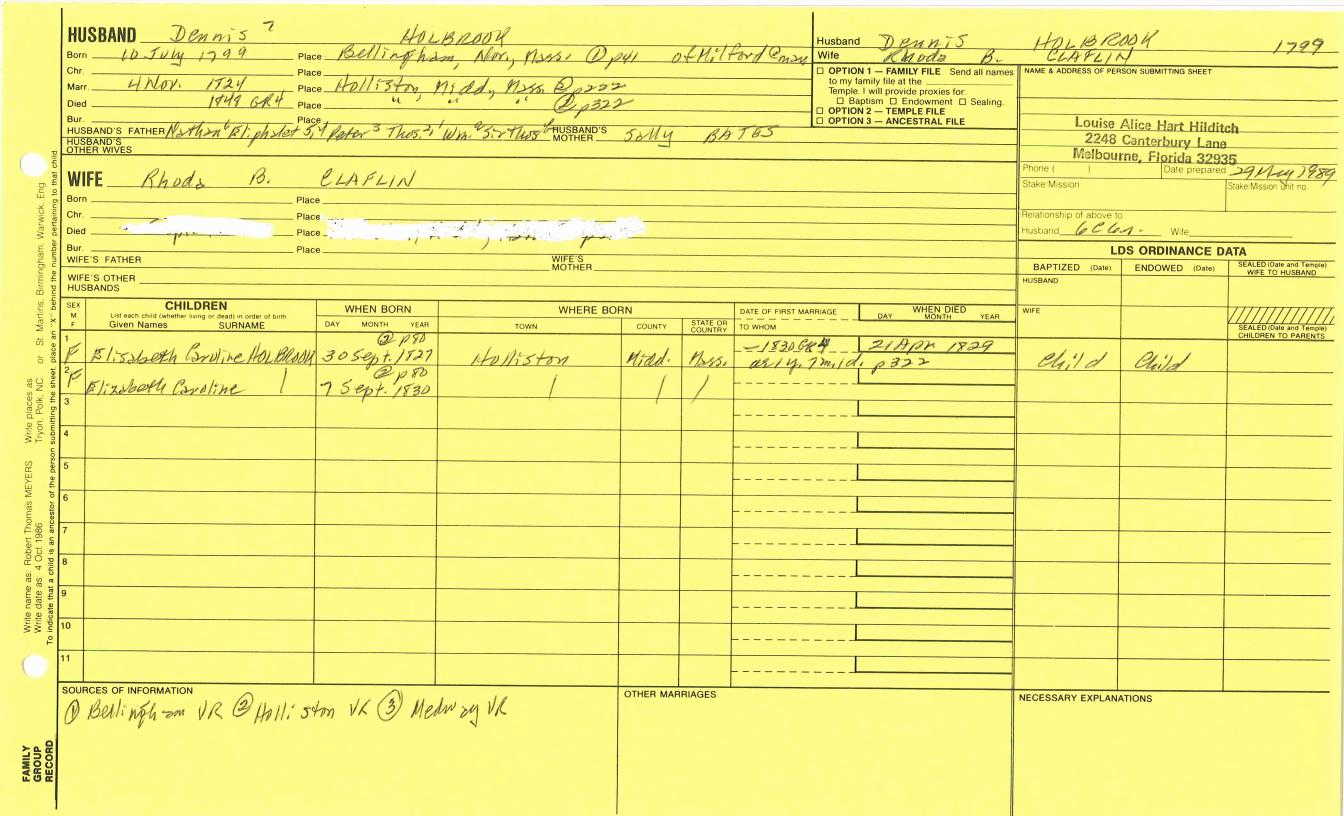 HUSBAND Dennis 7 HOLBROOK
Born 10 July 1799 Place Bellingham, Nor., Mass. ① p41 of Milford
Chr. Place
Marr. 4 Nov. 1824 Place Holliston, Midd., Mass. ② p222
Died 1849 GR4 Place " " " ② p322
Bur. Place
HUSBAND'S FATHER Nathan 6 Eliphalet 5,4 Peter 3 Thos 2,1 Wm Sir Thos HUSBAND'S MOTHER Sally BATES
HUSBAND'S OTHER WIVES
Husband Dennis HOLBROOK 1799
Wife Rhoda B. CLAFLIN
☐ OPTION 1 — FAMILY FILE Send all names
to my family file at the
Temple. I will provide proxies for:
☐ Baptism ☐ Endowment ☐ Sealing.
☐ OPTION 2 — TEMPLE FILE
☐ OPTION 3 — ANCESTRAL FILE
NAME & ADDRESS OF PERSON SUBMITTING SHEET
Louise Alice Hart Hilditch
2248 Canterbury Lane
Melbourne, Florida 32935
Phone ( ) Date prepared 29 May 1989
Stake Mission Stake Mission unit no.
Relationship of above to:
Husband 6C6r. Wife
WIFE Rhoda B. CLAFLIN
Born Place
Chr. Place
Died Place
Bur. Place
WIFE'S FATHER WIFE'S MOTHER
WIFE'S OTHER HUSBANDS
LDS ORDINANCE DATA
BAPTIZED (Date) ENDOWED (Date) SEALED (Date and Temple) WIFE TO HUSBAND
HUSBAND
WIFE
SEALED (Date and Temple) CHILDREN TO PARENTS
SEX M F
CHILDREN
List each child (whether living or dead) in order of birth
Given Names SURNAME
WHEN BORN
DAY MONTH YEAR
WHERE BORN
TOWN COUNTY STATE OR COUNTRY
DATE OF FIRST MARRIAGE
TO WHOM
WHEN DIED
DAY MONTH YEAR
1 ② p80 —1830 GR4 21 Apr 1829
F Elisabeth Caroline HOLBROOK 30 Sept. 1827 Holliston Midd. Mass. ae 1y. 7m 1d. p322 Child Child
2 ② p80
F Elizabeth Caroline 7 Sept. 1830
3
4
5
6
7
8
9
10
11
SOURCES OF INFORMATION
① Bellingham VR ② Holliston VR ③ Medway VR
OTHER MARRIAGES
NECESSARY EXPLANATIONS
Write name as: Robert Thomas MEYERS Write places as: Tryon, Polk, NC or St. Martins, Birmingham, Warwick, Eng.
Write date as: 4 Oct 1986
To indicate that a child is an ancestor of the person submitting the sheet, place an "X" behind the number pertaining to that child.
FAMILY GROUP RECORD